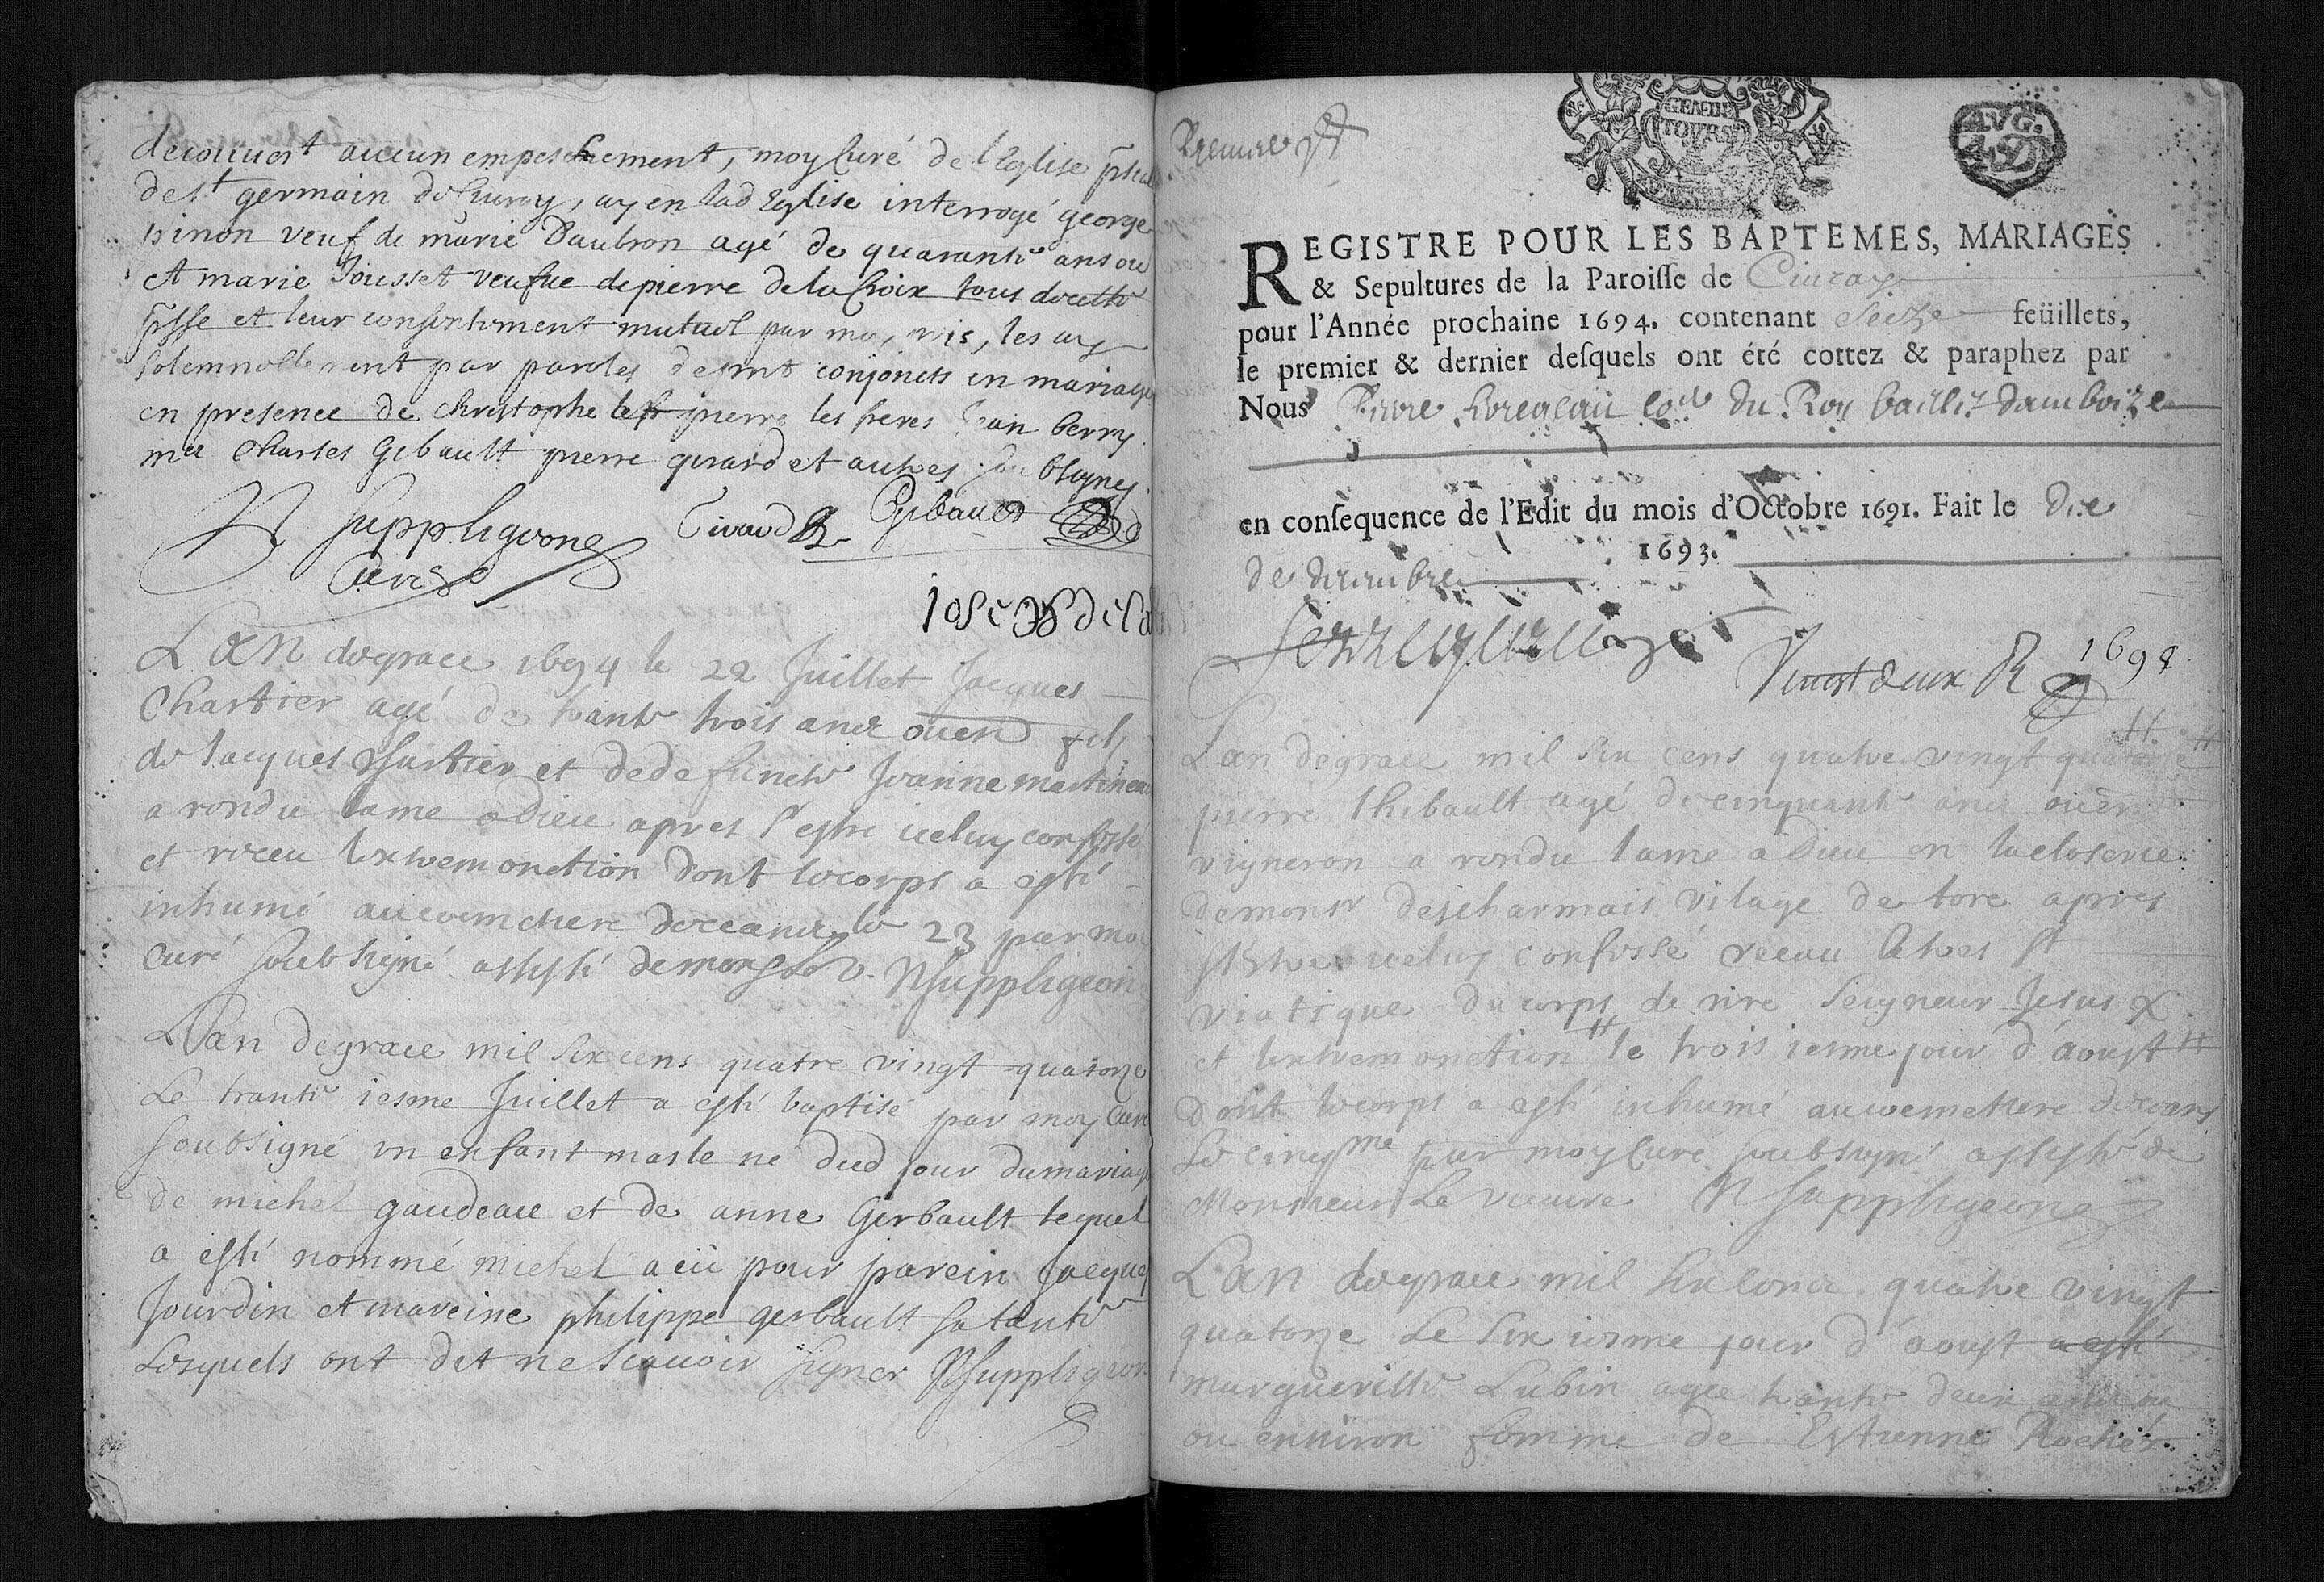 decouvert aucun empeschement, moy Curé de l'Eglise
de st germain de Civray, ay en lad Eglise interrogé george
sinon veuf de marie Daubron agé de quarante ans ou
et marie Jousset veufue de pierre de la Croix tous de cette
psse et leur consentement mutuel par moy pris, les ay
solemnellement par paroles de pnt conjoincts en mariage
en presence de christophe pierre les freres Jean berry
me Charles Gibault pierre girard et autres soubsignes
N Suppligeon Girard Gibault
Curé
Lan de grace 1694 le 22 Juillet Jacques
Chartier agé de trante trois ans ou en fils
de Jacques Chartier et de defuncte Jeanne martineau
a rendu lame a Dieu apres s'estre iceluy confessé
et receu lextrem onction dont le corps a esté
inhumé au cemetiere de ceans le 23 par moy
curé soubsigné assisté de mons le v. N Suppligeon
Lan de grace mil six cens quatre vingt quatorze
Le trante iesme Juillet a esté baptisé par moy Curé
soubsigné un enfant masle ne dud jour du mariage
de michel gaudeau et de anne Gerbault lequel
a esté nommé michel a eü pour parein Jacques
Jourdin et mareine philippe gerbault sa tante
Lesquels ont dit ne scauoir signer N Suppligeon
Premier
GENER
TOURS
AVG.
REGISTRE POUR LES BAPTEMES, MARIAGES
& Sepultures de la Paroisse de Ciuray
pour l'Année prochaine 1694. contenant Seize feüillets,
le premier & dernier desquels ont été cottez & paraphez par
Nous Pierre du Roy bailly damboize
en consequence de l'Edit du mois d'Octobre 1691. Fait le Dix
de decembre 1693.
Vingt deux 1694
Lan de grace mil six cens quatre vingt quatorze
pierre thibault agé de cinquante ans ou en
vigneron a rendu lame a Dieu en la closerie
de monsr descharmais vilage de tore apres
sestre iceluy confessé receu le tres st
viatique du corps de nre Seigneur Jesus X
et lextrem onction le trois iesme jour d'aoust
Dont le corps a esté inhumé au cemetiere de ceans
Le cinqme par moy Curé soubsigné assisté de
Monsieur Le vicaire N Suppligeon
Lan de grace mil six cens quatre vingt
quatorze Le six iesme jour d'aoust a esté
margueritte Lubin agee trante deux ans
ou environ femme de Estienne Rocher